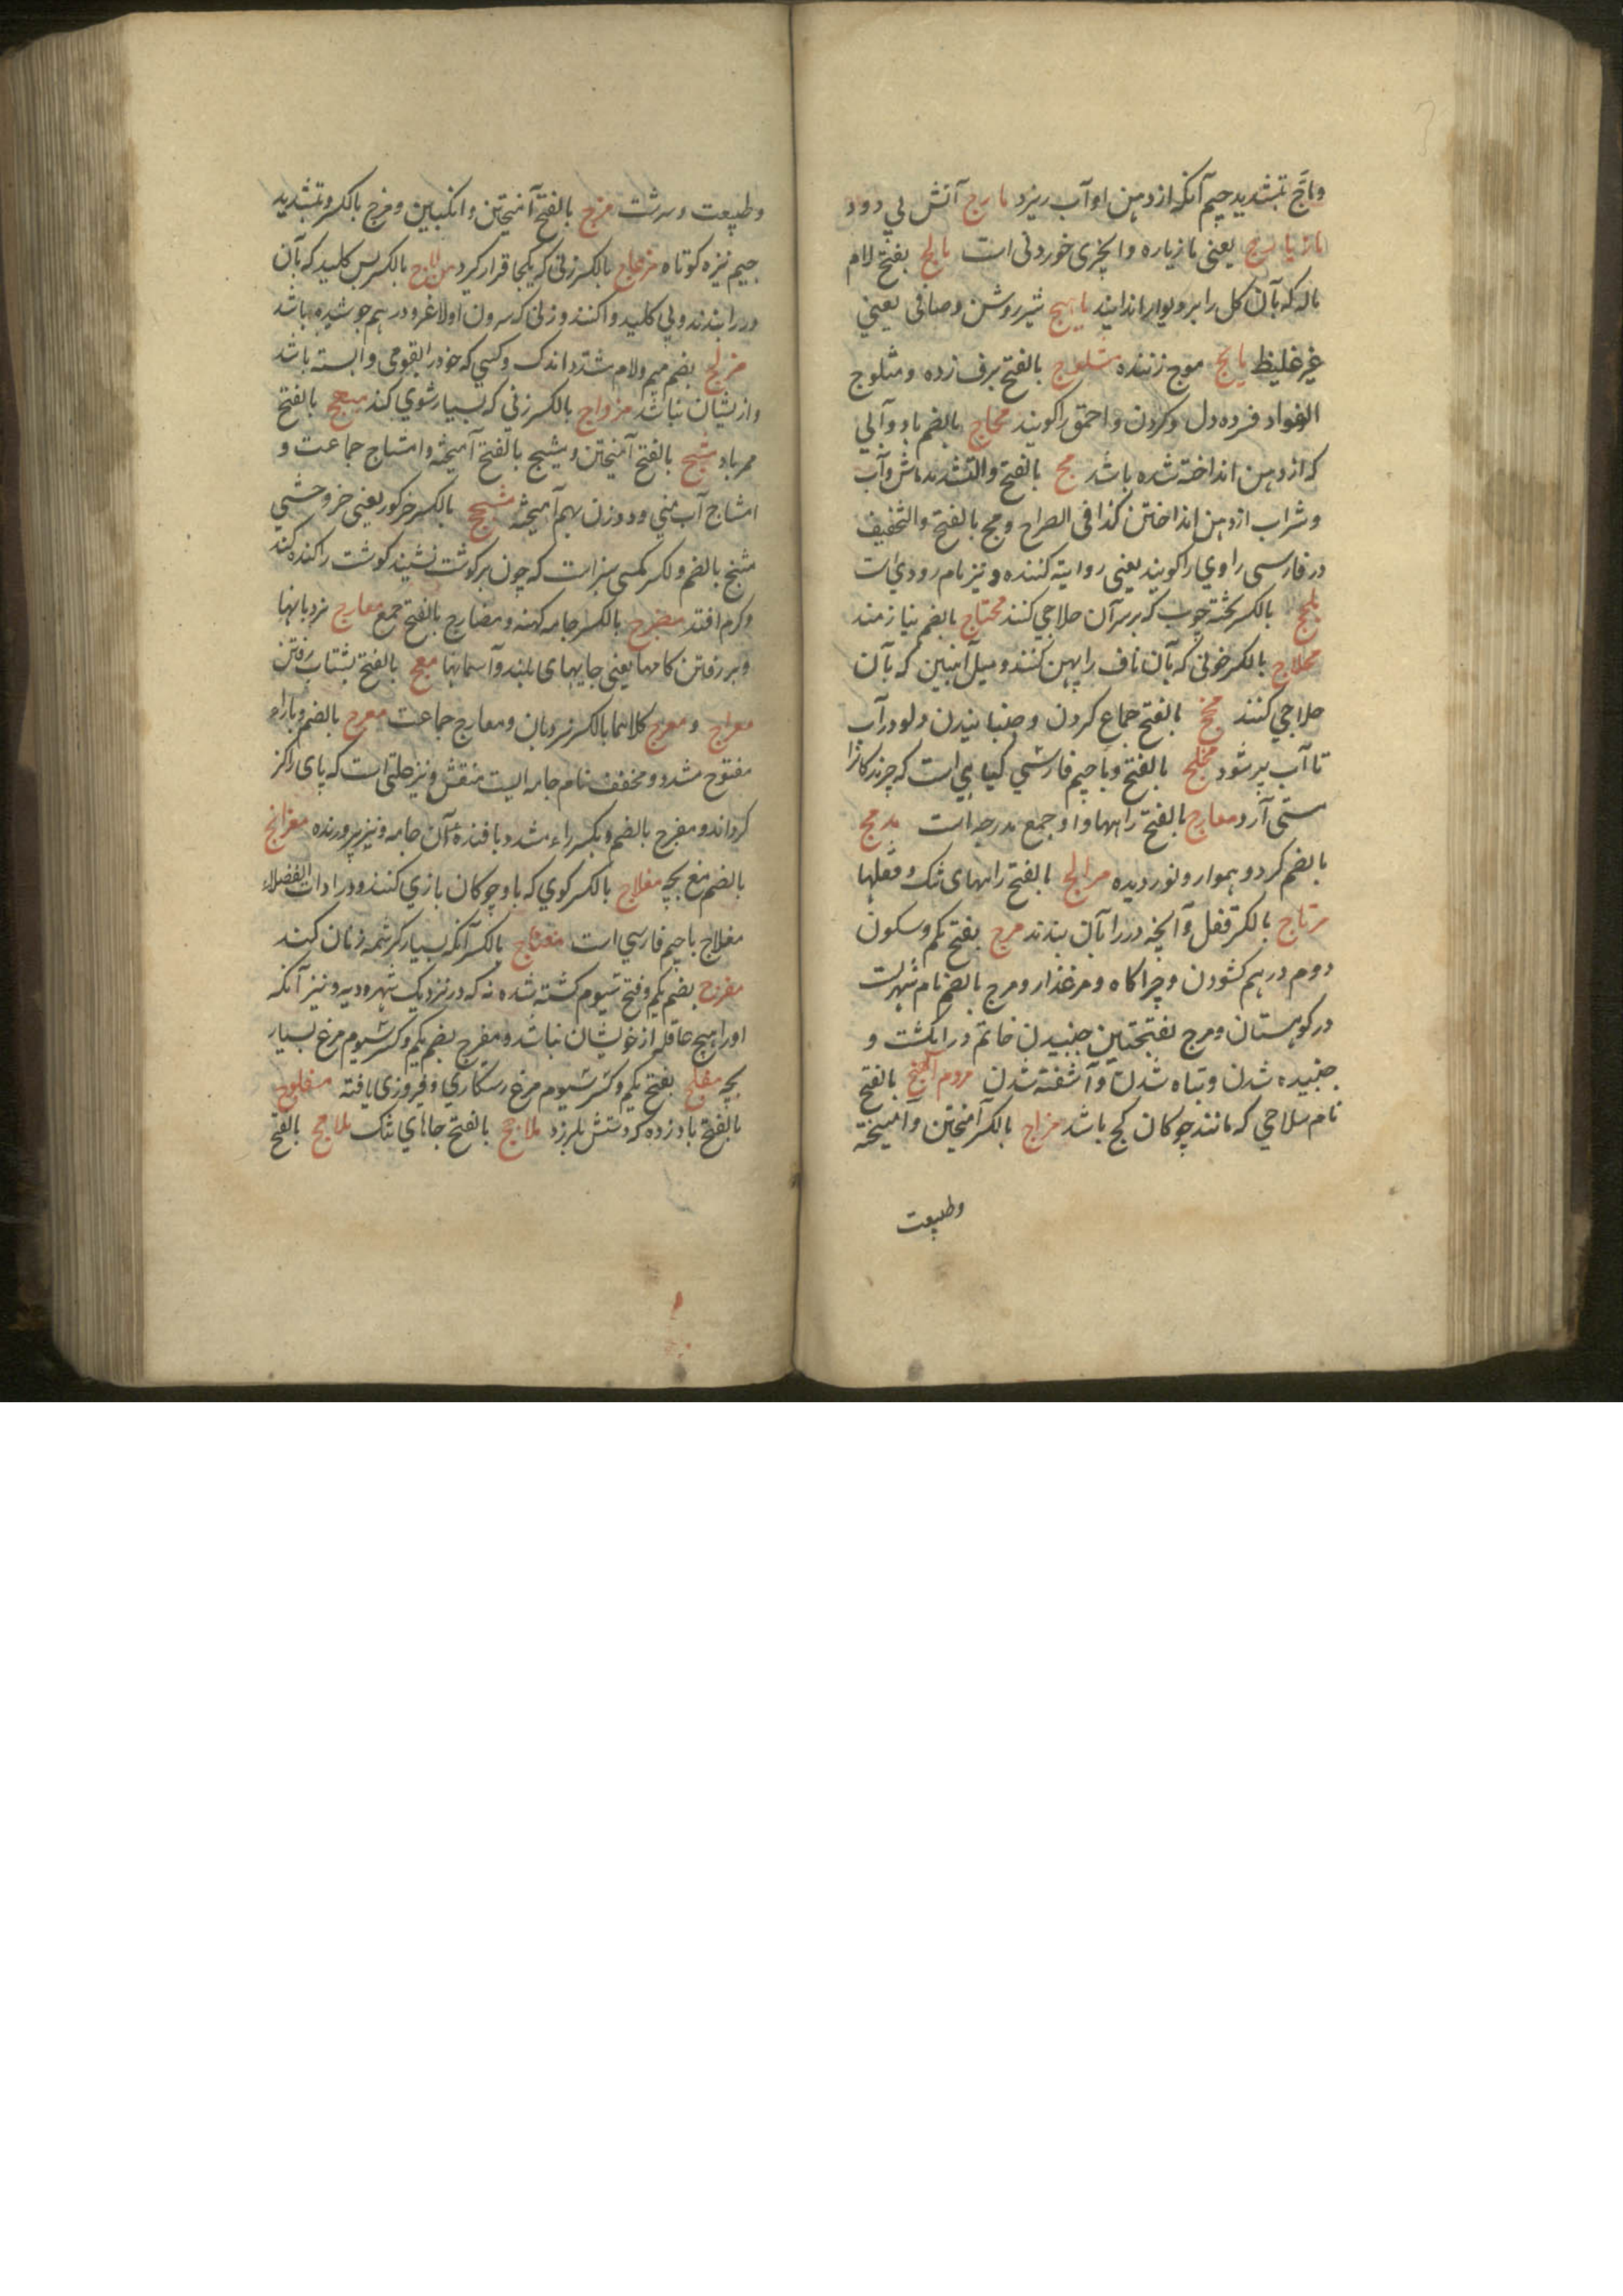 وماج بتشدید جیم آنکه از دهن او آب ریزد مارج آتش بی دود
مازیارج یعنی مازیاره و آنچزی خوردنی است مالج بفتح لام
ماله که بآن کل را بر دیوار اندایند ماهج شیر روشن و صافی یعنی
غیر غلیظ مایج موج زننده مثلوج بالفتح برف زده و مثلوج
الفواد فسرده دل و کودن و احمق را کویند مجاج بالضم باد و آبی
که از دهن انداخته شده باشد مج بالفتح والتشدید ماش و آب
و شراب از دهن انداختن کذا فی الصراح و مج بالفتح والتخفیف
در فارسی راوی را کویند یعنی روایه کننده و نیز نام رودی است
بالکسر تخته چوب که بر سر آن حلاجی کنند محتاج بالضم نیازمند
محلاج بالکسر خونی که بآن ناف را پهن کنند و میل آهنین که بآن
حلاجی کنند مخج بالفتح جماع کردن و جنبانیدن دلو در آب
تا آب پر شود مخلج بالفتح و با جیم فارسی کیاهی است که چرندکانرا
مستی آرد معارج بالفتح راهها و او جمع مدرجه است مدمج
بالضم کرد و هموار و نوردیده مزالج بالفتح راههای تنک و قفلها
مرتاج بالکسر قفل و آنچه در را بآن بندند مرج بفتح یکم و سکون
دوم در هم کشودن و چراکاه و مرغذار و مرج بالضم نام شهریست
در کوهستان و مرج بفتحتین جنبیدن خاتم در انکشت و
جنبیده شدن و تباه شدن و آشفته شدن بالفتح
نام سلاحی که مانند چوکان کج باشد مزاج بالکسر آمیختن و آمیخته
وطبیعت
وطبیعت و سرشت مزج بالفتح آمیختن و انکبین و مزج بالکسر و بتشدید
جیم نیزه کوتاه مزعاج بالکسر زنی که یکجا قرار کیرد مزلاج بالکسر پس کلید که بآن
در را بندند و بی کلید وا کنند و زنی که سرون او لاغر و درهم جوشیده باشد
مزلج بضم میم و لام مشدد اندک و کسی که خود را بقومی وابسته باشد
و از یشان نباشد مزواج بالکسر زنی که بسیار شوی کند مسحج بالفتح
ممر باد مشج بالفتح آمیختن و مشیج بالفتح آمیخته و امتشاج جماعت و
امشاج آب منی مرد و زن بهم آمیخته مشحج بالکسر خر کور یعنی خر وحشی
مشنج بالضم و لکسر مکسی سبز است که چون بر کوشت نشیند کوشت را کنده کند
و کرم افتد مضرج بالکسر جامه کهنه و مضارج بالفتح جمع معارج نردبانها
و بر رفتن کامها یعنی جایهای بلند و آسمانها معج بالفتح بشتاب رفتن
معراج و معرج کلاهما بالکسر نردبان و معارج جماعت معرج بالضم و باراء
مفتوح مشدد و مخفف نام جامه ایست منقش و نیز علتی است که پای را کژ
کرداند و معرج بالضم و بکسر راء مشدد بافنده آن جامه و نیز پرورنده مغزانج
بالضم مغ بچه مغلاج بالکسر کوی که با و چوکان بازی کنند و در ادات الفضلاء
مغلاج با جیم فارسی است مغناج بالکسر آنکه بسیار کرشمه زنان کند
مفرج بضم یکم و فتح سیوم کشته شده نه که در نزدیک شهر و دیه و نیز آنکه
او را هیچ عاقله از خویشان نباشد و مفرج بضم یکم و کسر سیوم مرغ بسیار
بچه مفلج بفتح یکم و کسر سیوم مرغ رستکاری و فیروزی یافته مفلوج
بالفتح باد زده که دستش بلرزد ملاجج بالفتح جاهای تنک ملامج بالفتح